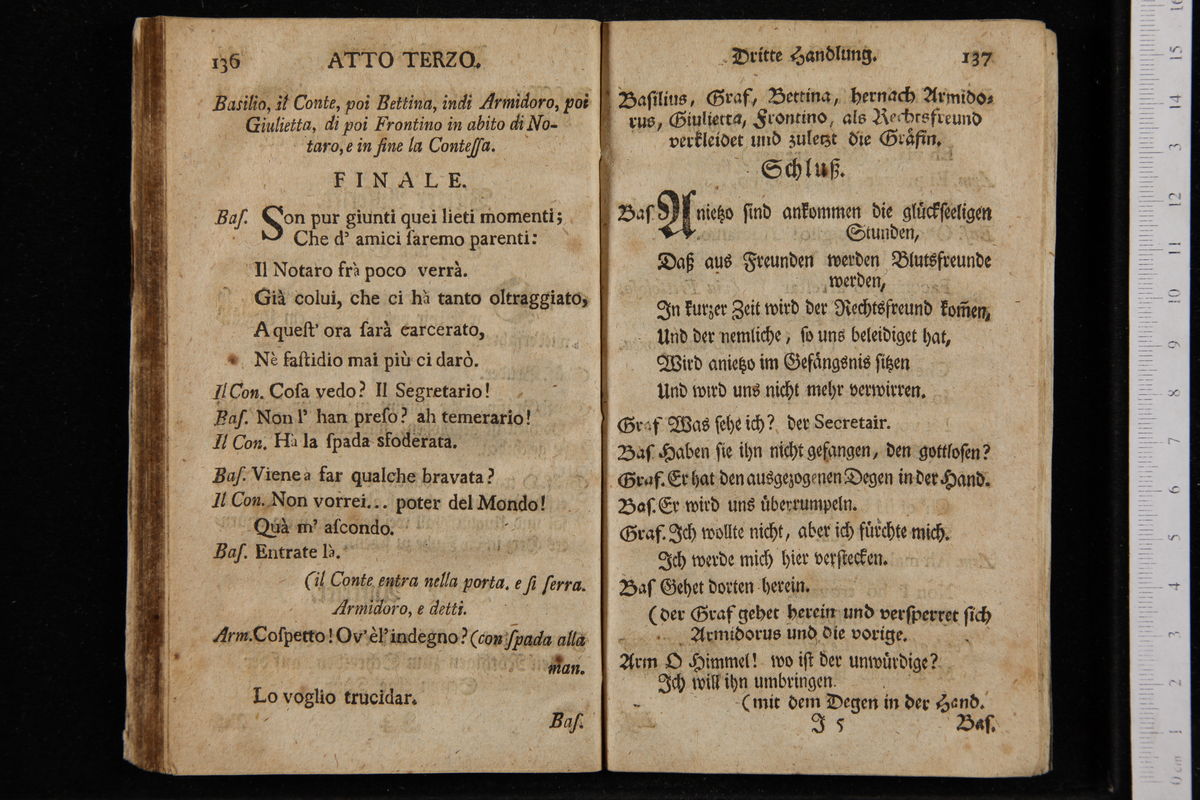 136 ATTO TERZO.
Baſilio, il Conte, poi Bettina, indi Armidoro, poi
Giulietta, di poi Frontino in abito di No-
taro, e in fine la Conteſſa.
FINALE.
Baſ. Son pur giunti quei lieti momenti;
Che d' amici ſaremo parenti:
Il Notaro frà poco verrà.
Già colui, che ci hà tanto oltraggiato,
A queſt' ora ſarà carcerato,
Nè faſtidio mai più ci darò.
Il Con. Coſa vedo? Il Segretario!
Baſ. Non l' han preſo? ah temerario!
Il Con. Hà la ſpada sfoderata.
Baſ. Viene a far qualche bravata?
Il Con. Non vorrei... poter del Mondo!
Quà m' aſcondo.
Baſ. Entrate là.
(il Conte entra nella porta. e ſi ſerra.
Armidoro, e detti.
Arm. Coſpetto! Ov' è l' indegno? (con ſpada alla
man.
Lo voglio trucidar.
Baſ.
Dritte Handlung. 137
Baſilius, Graf, Bettina, hernach Armido-
rus, Giulietta, Frontino, als Rechtsfreund
verkleidet und zuletzt die Gräfin.
Schluß.
Baſ Anietzo ſind ankommen die glückſeeligen
Stunden,
Daß aus Freunden werden Blutsfreunde
werden,
In kurzer Zeit wird der Rechtsfreund kom̃en,
Und der nemliche, ſo uns beleidiget hat,
Wird anietzo im Gefängnis ſitzen
Und wird uns nicht mehr verwirren.
Graf Was ſehe ich? der Secretair.
Baſ. Haben ſie ihn nicht gefangen, den gottloſen?
Graf. Er hat den ausgezogenen Degen in der Hand.
Baſ. Er wird uns überrumpeln.
Graf. Ich wollte nicht, aber ich fürchte mich.
Ich werde mich hier verſtecken.
Baſ Gehet dorten herein.
(der Graf gehet herein und verſperret ſich
Armidorus und die vorige.
Arm O Himmel! wo iſt der unwürdige?
Ich will ihn umbringen.
(mit dem Degen in der Hand.
J 5 Baſ.